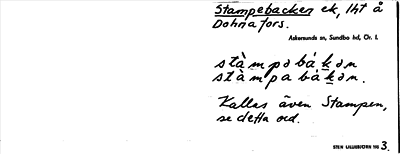 Stampebacken ek, lht å
Dohnafors.
Askersunds sn, Sundbo hd, Ör. l.
stàmpəbákən
stàmpabákən.
Kallas även Stampen,
se detta ord.
STEN LILLIESTRÖM 193 3.